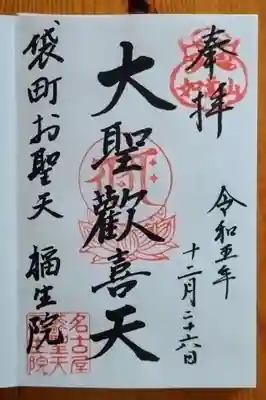 奉拝
令和五年
十二月二十六日
大聖歡喜天
袋町お聖天 福生院
名古屋
聖天
院